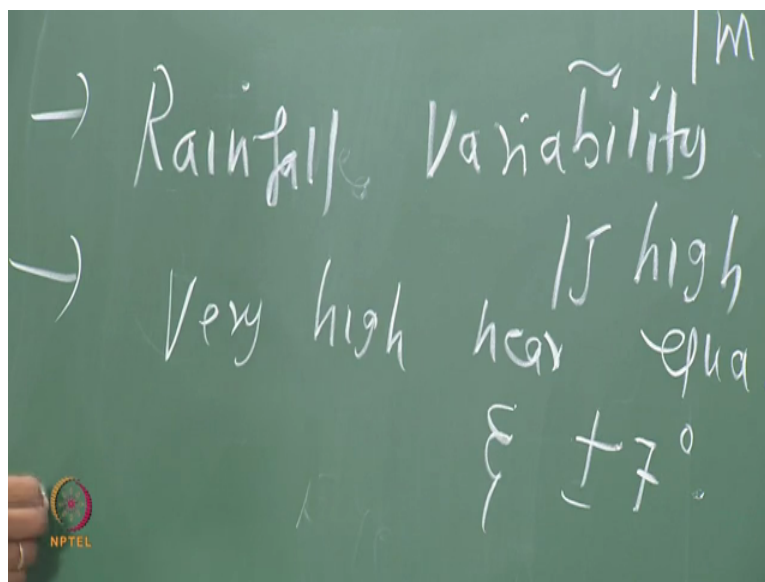 1m
→ Rainfall Variability
is high
→ Very high near equa
& ±7°
NPTEL